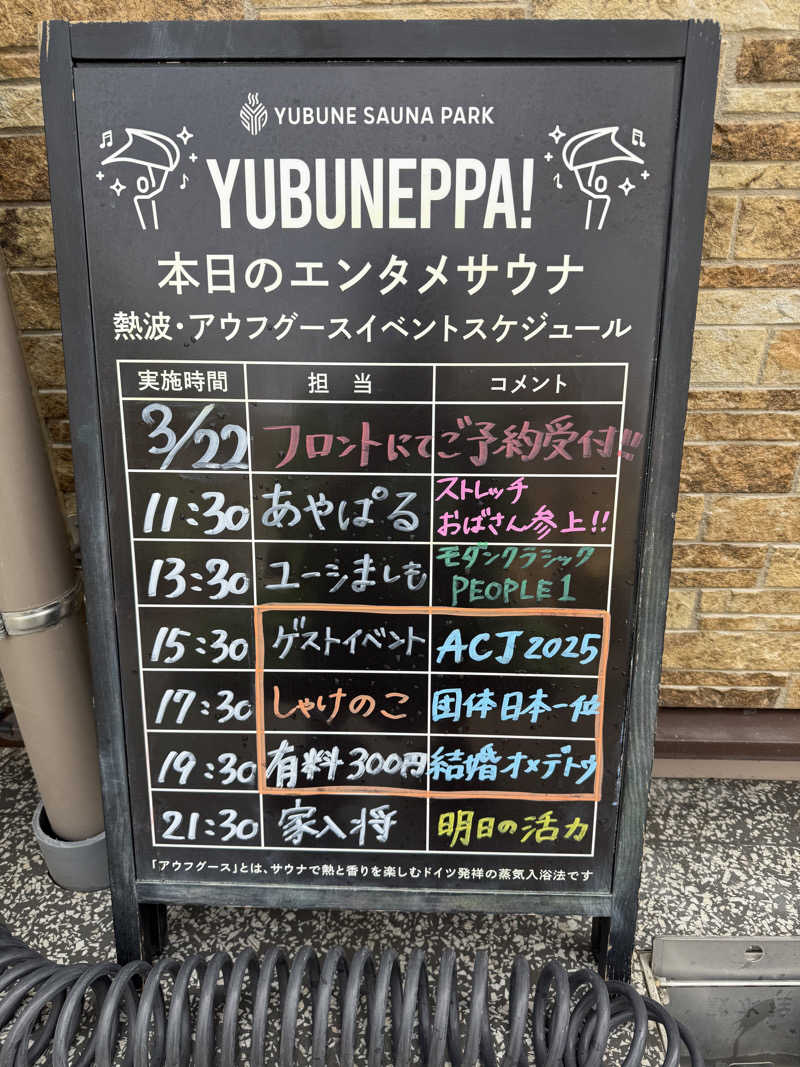 YUBUNE SAUNA PARK
YUBUNEPPA!
本日のエンタメサウナ
熱波・アウフグースイベントスケジュール
実施時間 担当 コメント
3/22 フロントにてご予約受付!!
11:30 あやぱる ストレッチ
おばさん参上!!
13:30 ユーシましも モダンクラシック
PEOPLE1
15:30 ゲストイベント ACJ2025
17:30 しゃけのこ 団体日本一位
19:30 有料300円 結婚オメデトウ
21:30 家入将 明日の活力
「アウフグース」とは、サウナで熱と香りを楽しむドイツ発祥の蒸気入浴法です